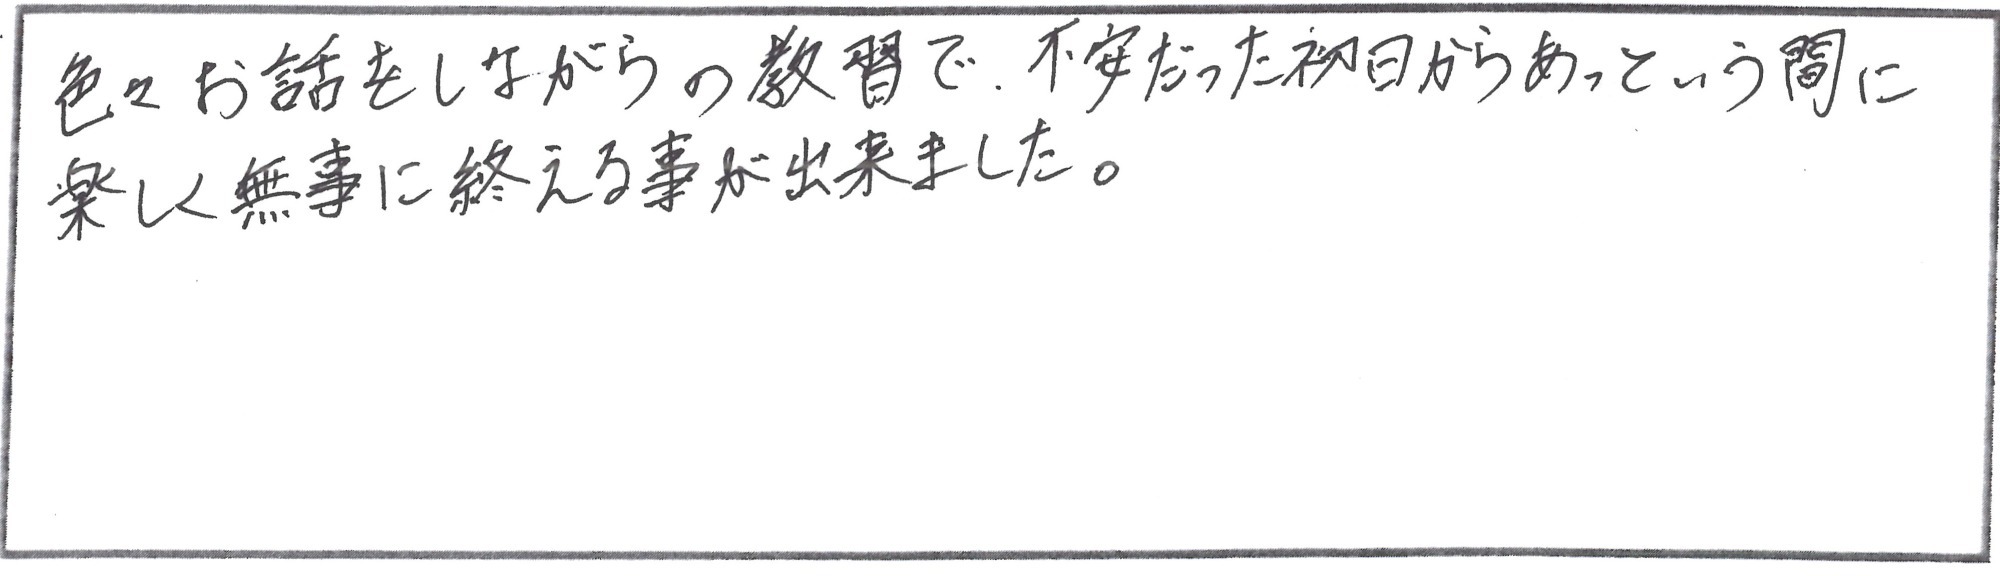 色々お話をしながらの教習で、不安だった初日からあっという間に
楽しく無事に終える事が出来ました。